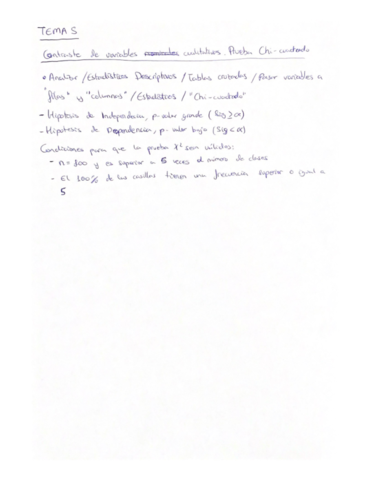 TEMA 5
Contraste de variables cualitativas. Prueba Chi-cuadrado
• Analizar / Estadísticos Descriptivos / Tablas cruzadas / Pasar variables a
"filas" y "columnas" / Estadísticos / "Chi-cuadrado"
- Hipotesis de Independencia, p-valor grande (Sig ≥ α)
- Hipotesis de Dependencia, p-valor bajo (Sig < α)
Condiciones para que la prueba X² sean válidas:
- n = 100 y es superior a 5 veces el número de clases
- El 100% de las casillas tienen una frecuencia superior o igual a
5